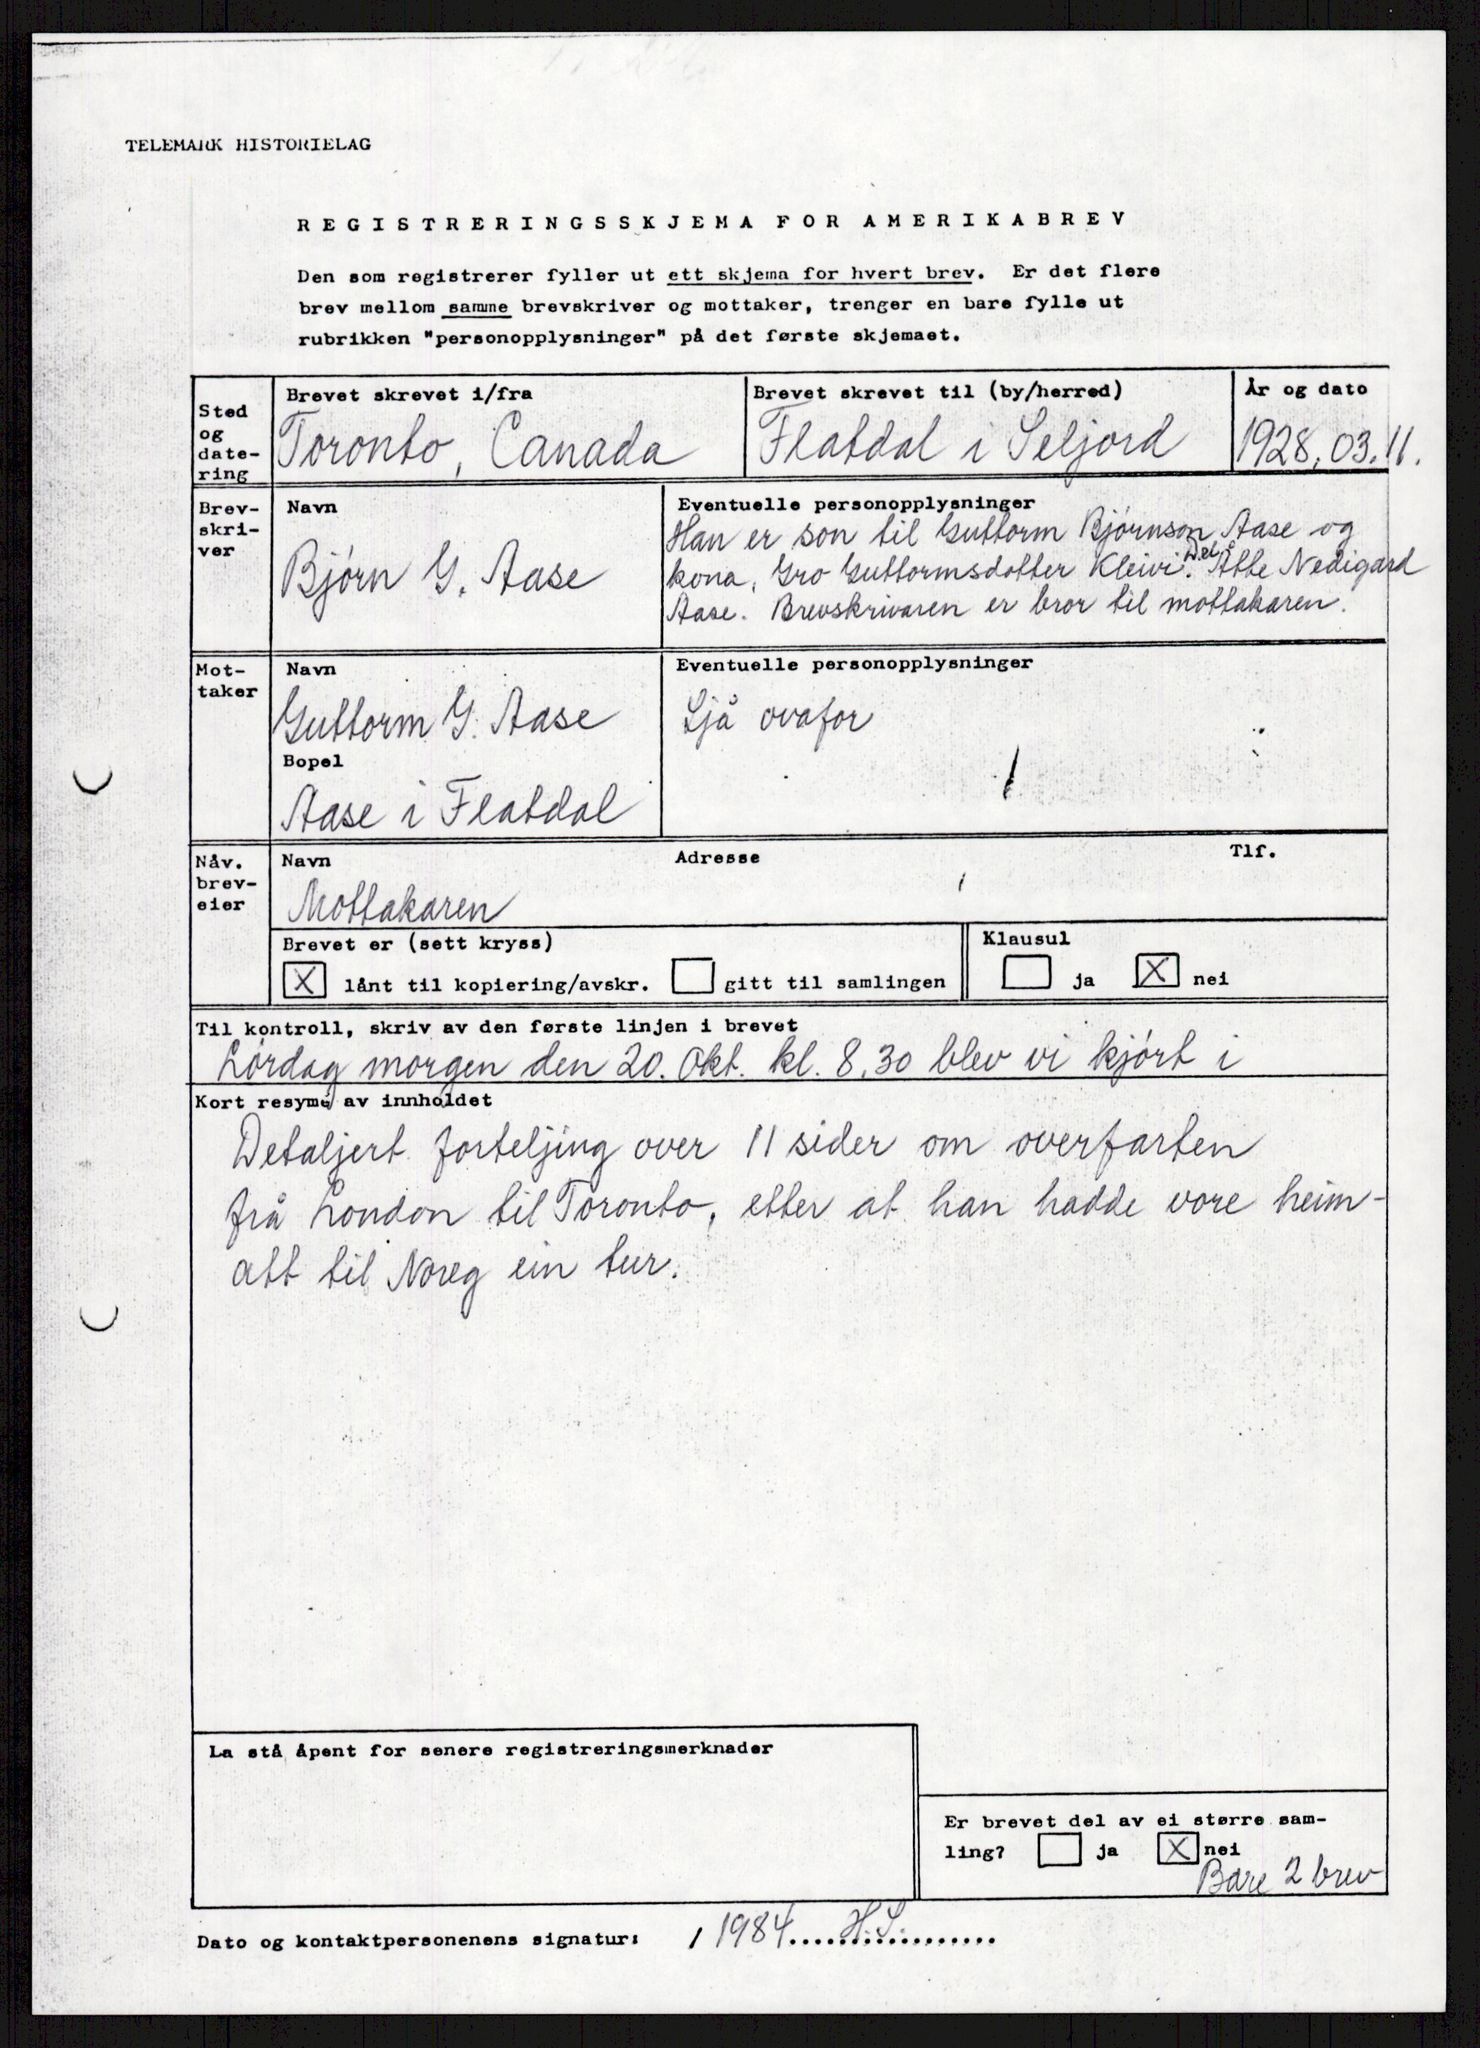 TELEMARK HISTORIELAG
REGISTRERINGSSKJEMA FOR AMERIKABREV
Den som registrerer fyller ut ett skjema for hvert brev. Er det flere
brev mellom samme brevskriver og mottaker, trenger en bare fylle ut
rubrikken "personopplysninger" på det første skjemaet.
Sted
og
date-
ring
Brevet skrevet i/fra
Toronto, Canada
Brevet skrevet til (by/herred)
Flatdal i Seljord
År og dato
1928.03.11.
Brev-
skri-
ver
Navn
Bjørn G. Aase
Eventuelle personopplysninger
Han er son til Guttorm Bjørnson Aase og
kona, Gro Guttormsdotter Kleivi. Del. Åtte Nedigard
Aase. Brevskrivaren er bror til mottakaren.
Mot-
taker
Navn
Guttorm G. Aase
Bopel
Aase i Flatdal
Eventuelle personopplysninger
Sjå ovafor
Nåv.
brev-
eier
Navn
Mottakaren
Adresse
Tlf.
Brevet er (sett kryss)
X lånt til kopiering/avskr. gitt til samlingen
Klausul
ja X nei
Til kontroll, skriv av den første linjen i brevet
Lørdag morgen den 20. Okt. kl. 8,30 blev vi kjørt i
Kort resymé av innholdet
Detaljert forteljing over 11 sider om overfarten
frå London til Toronto, etter at han hadde vore heim-
att til Noreg ein tur.
La stå åpent for senere registreringsmerknader
Er brevet del av ei større sam-
ling? ja X nei
Bare 2 brev
Dato og kontaktpersonenens signatur: / 1984....H.S.................